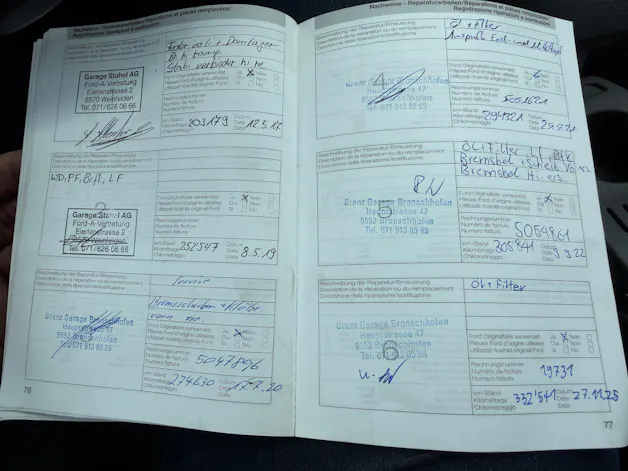 Nachweise – Reparaturarbeiten/Réparations et pièces remplacées/
Registrazione riparazioni e sostituzioni
Beschreibung der Reparatur/Erneuerung
Description de la réparation ou du remplacement
Descrizione della riparazione/sostituzione
Garage Stahel AG
Ford-A-Vertretung
Eierlenstrasse 2
8570 Weinfelden
Tel. 071/626 06 66
Feder vo li + Domlager
Stabi verbinder
Ford Originalteile verwendet
Pièces Ford d'origine utilisées
Utilizzati ricambi originali Ford
Ja X Nein
Oui Non
Si No
Rechnungsnummer
Numéro de facture
Numero fattura
km-Stand
Kilométrage
Chilometraggio
203179
Datum
Date
Data
12.5.17
Beschreibung der Reparatur/Erneuerung
Description de la réparation ou du remplacement
Descrizione della riparazione/sostituzione
WD, PF, B.fl, LF
Garage Stahel AG
Ford-A-Vertretung
Eierlenstrasse 2
Tel. 071/626 06 66
Ford Originalteile verwendet
Pièces Ford d'origine utilisées
Utilizzati ricambi originali Ford
Ja X Nein
Oui Non
Si No
Rechnungsnummer
Numéro de facture
Numero fattura
km-Stand
Kilométrage
Chilometraggio
252547
Datum
Date
Data
8.5.19
Beschreibung der Reparatur/Erneuerung
Description de la réparation ou du remplacement
Descrizione della riparazione/sostituzione
Service
Bremsscheiben + Klötze
Grenz Garage Bronschhofen
Hauptstrasse 47
9552 Bronschhofen
Tel. 071 913 85 85
Ford Originalteile verwendet
Pièces Ford d'origine utilisées
Utilizzati ricambi originali Ford
Ja X Nein
Oui Non
Si No
Rechnungsnummer
Numéro de facture
Numero fattura
5047896
km-Stand
Kilométrage
Chilometraggio
274630
Datum
Date
Data
17.7.20
76
Nachweise – Reparaturarbeiten/Réparations et pièces remplacées/
Registrazione riparazioni e sostituzioni
Beschreibung der Reparatur/Erneuerung
Description de la réparation ou du remplacement
Descrizione della riparazione/sostituzione
Öl + Filter
4
Grenz Garage Bronschhofen
Hauptstrasse 47
9552 Bronschhofen
Tel. 071 913 85 85
Ford Originalteile verwendet
Pièces Ford d'origine utilisées
Utilizzati ricambi originali Ford
Ja Nein
Oui Non
Si No
Rechnungsnummer
Numéro de facture
Numero fattura
5051621
km-Stand
Kilométrage
Chilometraggio
294321
Datum
Date
Data
Beschreibung der Reparatur/Erneuerung
Description de la réparation ou du remplacement
Descrizione della riparazione/sostituzione
Öl, Filter, LF, Bfk
Bremsbel + Scheib Vo
Bremsbel Hi
5
Grenz Garage Bronschhofen
Hauptstrasse 47
9552 Bronschhofen
Tel. 071 913 85 85
Ford Originalteile verwendet
Pièces Ford d'origine utilisées
Utilizzati ricambi originali Ford
Ja X Nein
Oui Non
Si No
Rechnungsnummer
Numéro de facture
Numero fattura
5054861
km-Stand
Kilométrage
Chilometraggio
305841
Datum
Date
Data
9.9.22
Beschreibung der Reparatur/Erneuerung
Description de la réparation ou du remplacement
Descrizione della riparazione/sostituzione
Öl + Filter
6
Grenz Garage Bronschhofen
Hauptstrasse 47
9552 Bronschhofen
Tel. 071 913 85 85
Ford Originalteile verwendet
Pièces Ford d'origine utilisées
Utilizzati ricambi originali Ford
Ja X Nein
Oui Non
Si No
Rechnungsnummer
Numéro de facture
Numero fattura
19731
km-Stand
Kilométrage
Chilometraggio
332'541
Datum
Date
Data
27.11.25
77